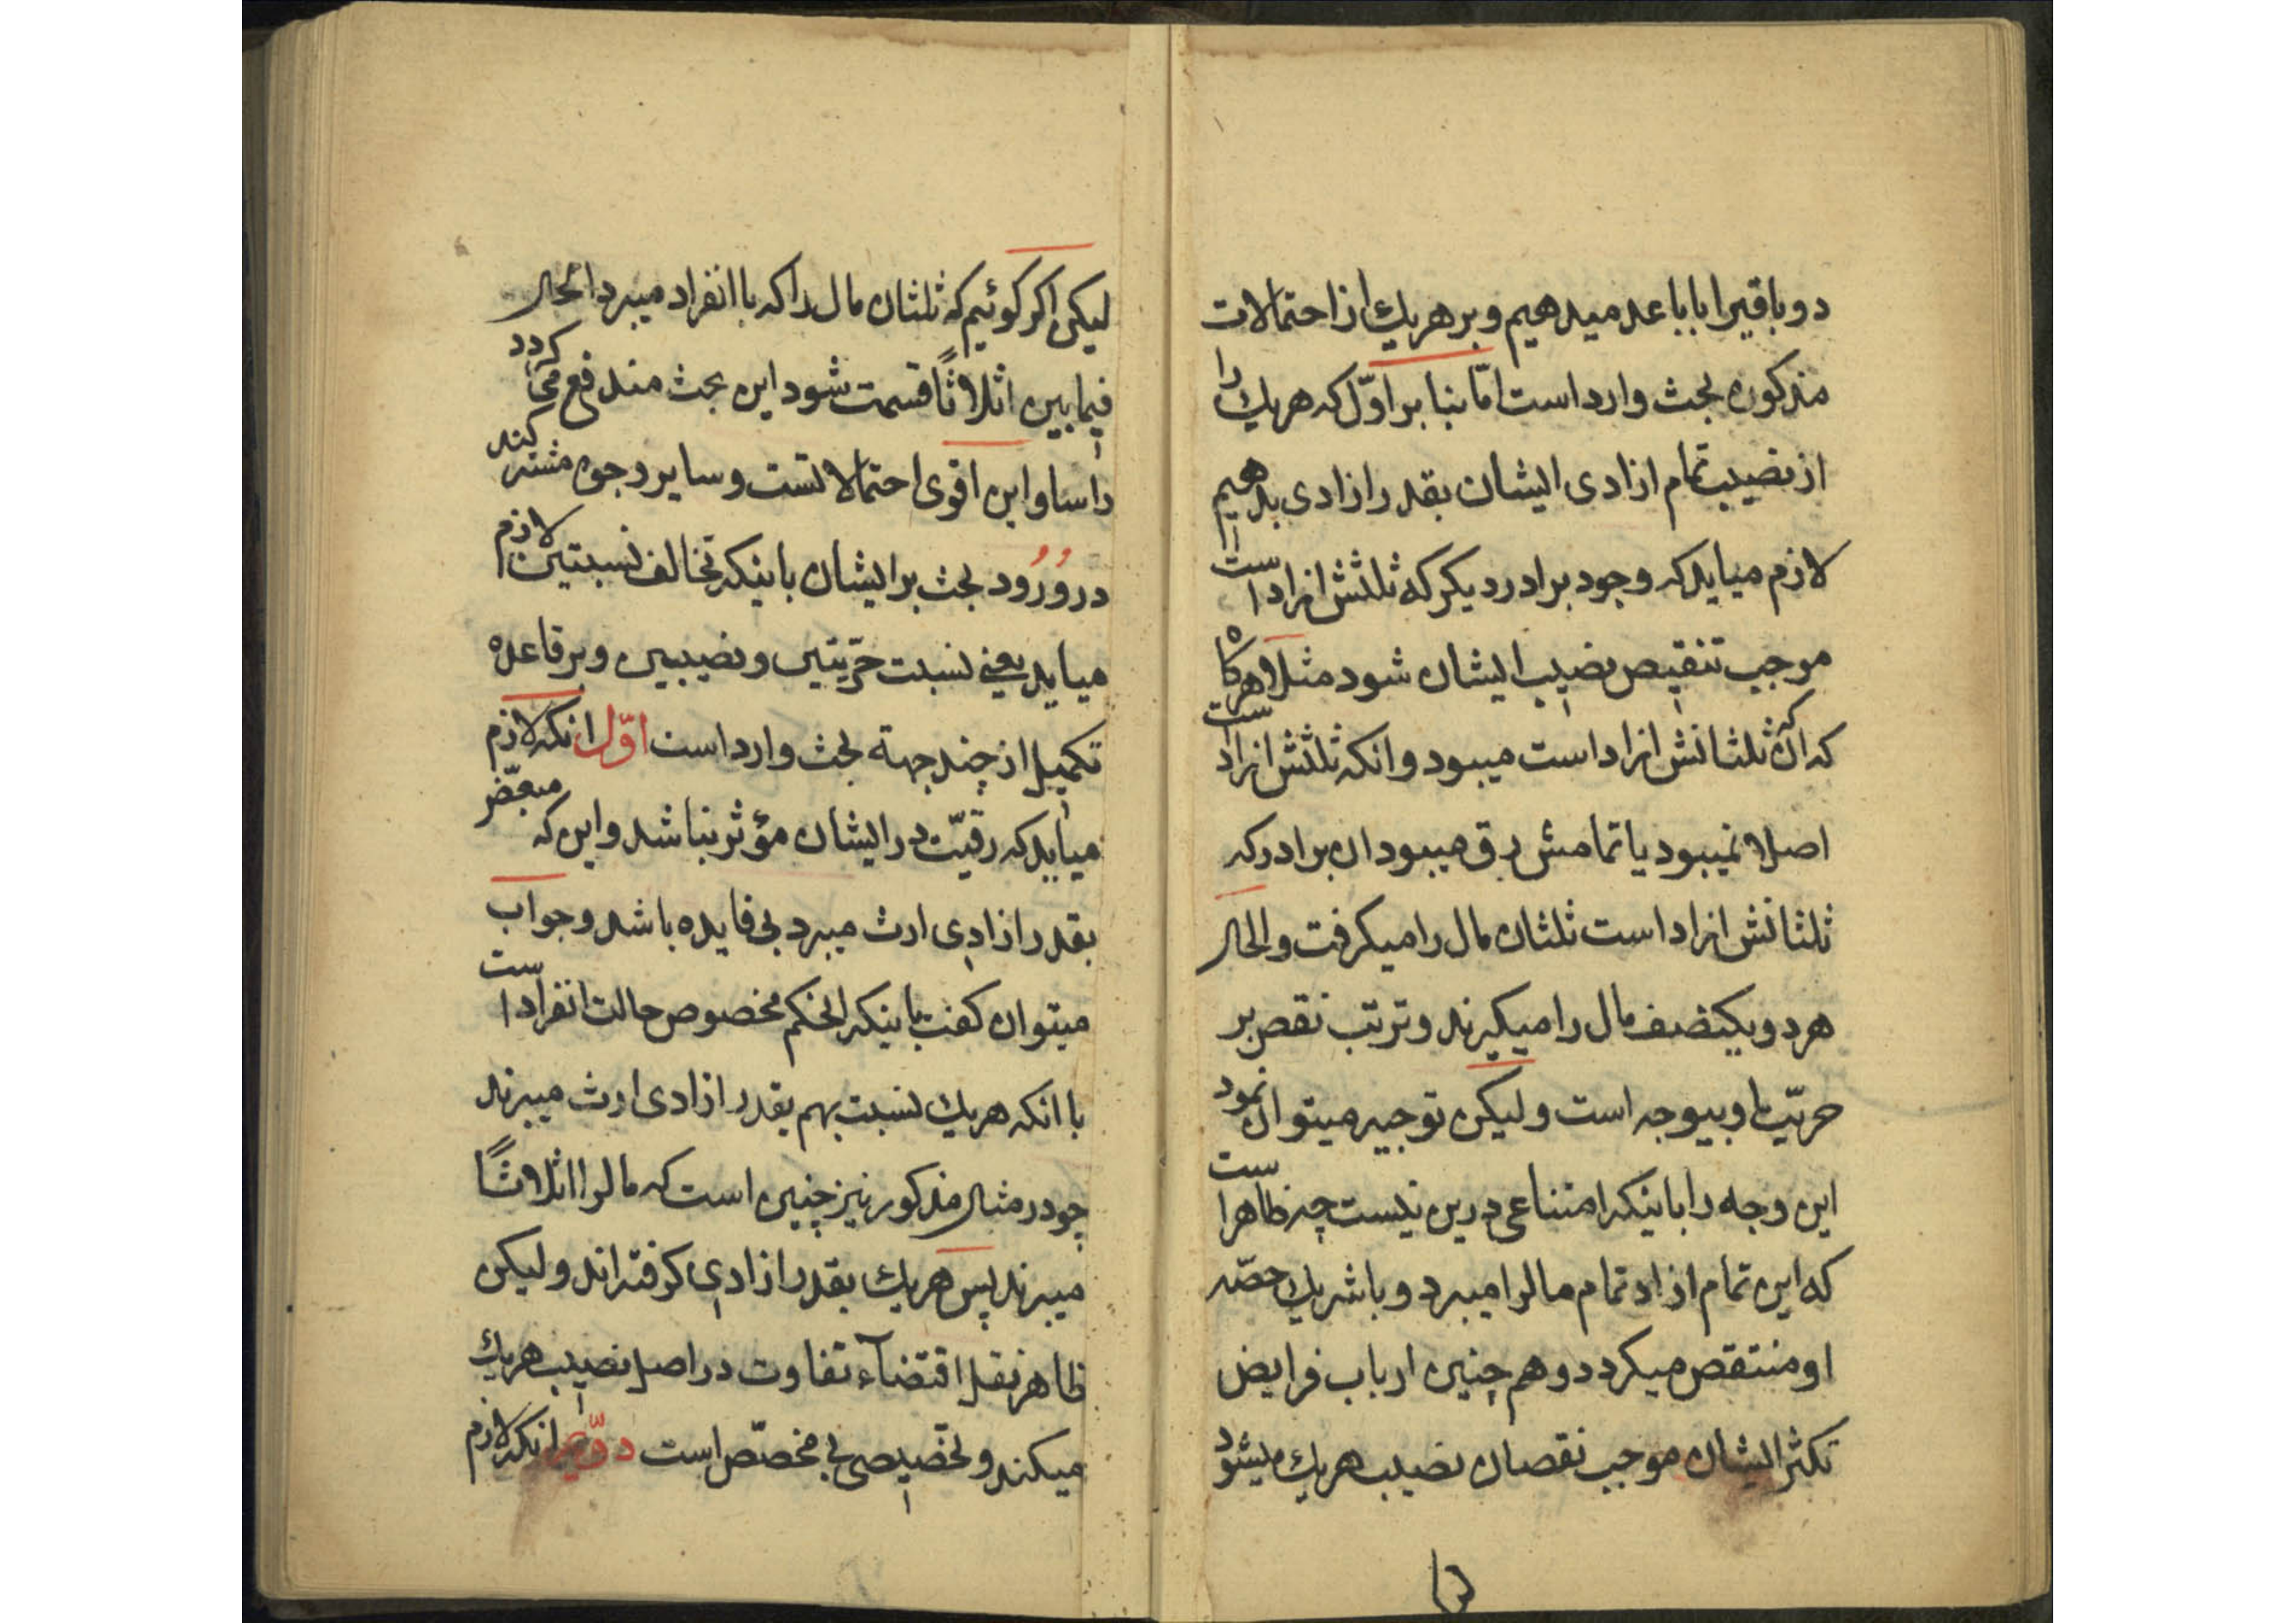 دو باقیرا باباعد میدهیم و بر هریك از احتمالات
مذکوره بحث وارد است امّا بنا بر اوّل که هریك را
از نصیب تمام ازادی ایشان بقدر ازادی بدهیم
لازم میاید که وجود برادر دیکر که ثلثش ازاد است
موجب تنقیص نصیب ایشان شود مثلا هرکاه
که آن که ثلثانش ازاد است میبود و انکه ثلثش ازاد است
اصلا نمیبود یا تمامش رق میبود ان برادر که
ثلثانش ازاد است ثلثان مال را میکرفت و الحال
هر دو یکنصف مال را میکیرند و ترتب نقص بر
حریّت او بیوجه است ولیکن توجیه میتوان نمود
این وجه را باینکه امتناعی درین نیست چه ظاهر است
که این تمام ازاد تمام مالرا میبرد و با شریك حصّه
او منتقص میکردد و هم چنین ارباب فرایض
تکثر ایشان موجب نقصان نصیب هریك میشود
لیکن اکر کوئیم که ثلثان مال را که با انفراد میبرد الحال
فیمابین اثلاثًا قسمت شود این بحث مندفع می کردد
راسا و این اقوی احتمالاتست و سایر وجوه مشترکند
در وُرُود بحث بر ایشان باینکه تخالف نسبتین لازم
میاید یعنی نسبت حرّیتین و نصیبین و بر قاعده
تکمیل از چند جهة بحث وارد است اوّل انکه لازم
میاید که رقیّت در ایشان مؤثر نباشد و این که مبعّض
بقدر ازادی ارث میبرد بی فایده باشد و جواب
میتوان کفت باینکه الحکم مخصوص حالت انفراد است
با انکه هریك نسبت بهم بقدر ازادی ارث میبرند
چو در مثال مذکور نیز چنین است که مالرا اثلاثًا
میبرند پس هریك بقدر ازادی کرفته اند ولیکن
ظاهر نقل اقتضآء تفاوت در اصل نصیب هریك
میکند و تخصیص بی مخصّص است دوّیم انکه لازم